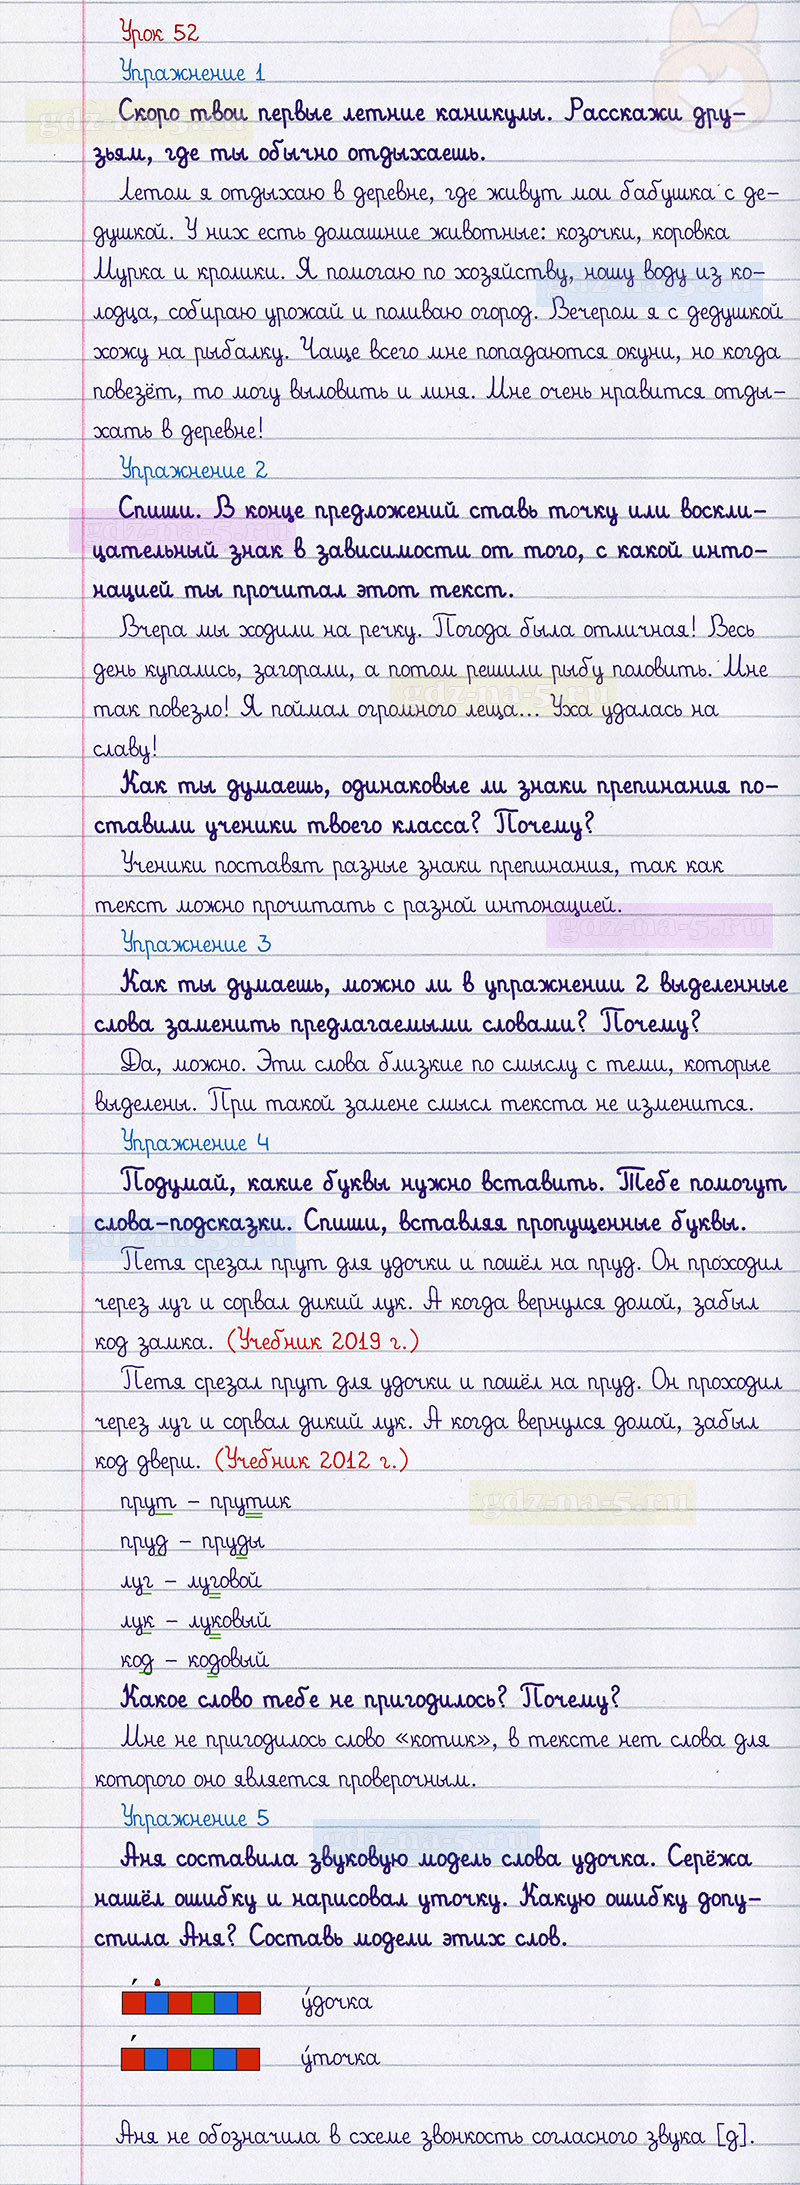 Урок 52
Упражнение 1
Скоро твои первые летние каникулы. Расскажи дру-
зьям, где ты обычно отдыхаешь.
Летом я отдыхаю в деревне, где живут мои бабушка с де-
душкой. У них есть домашние животные: козочки, коровка
Мурка и кролики. Я помогаю по хозяйству, ношу воду из ко-
лодца, собираю урожай и поливаю огород. Вечером я с дедушкой
хожу на рыбалку. Чаще всего мне попадаются окуни, но когда
повезёт, то могу выловить и линя. Мне очень нравится отды-
хать в деревне!
Упражнение 2
Спиши. В конце предложений ставь точку или воскли-
цательный знак в зависимости от того, с какой инто-
нацией ты прочитал этот текст.
Вчера мы ходили на речку. Погода была отличная! Весь
день купались, загорали, а потом решили рыбу половить. Мне
так повезло! Я поймал огромного леща... Уха удалась на
славу!
Как ты думаешь, одинаковые ли знаки препинания по-
ставили ученики твоего класса? Почему?
Ученики поставят разные знаки препинания, так как
текст можно прочитать с разной интонацией.
Упражнение 3
Как ты думаешь, можно ли в упражнении 2 выделенные
слова заменить предлагаемыми словами? Почему?
Да, можно. Эти слова близкие по смыслу с теми, которые
выделены. При такой замене смысл текста не изменится.
Упражнение 4
Подумай, какие буквы нужно вставить. Тебе помогут
слова-подсказки. Спиши, вставляя пропущенные буквы.
Петя срезал прут для удочки и пошёл на пруд. Он проходил
через луг и сорвал дикий лук. А когда вернулся домой, забыл
код замка. (Учебник 2019 г.)
Петя срезал прут для удочки и пошёл на пруд. Он проходил
через луг и сорвал дикий лук. А когда вернулся домой, забыл
код двери. (Учебник 2012 г.)
прут – прутик
пруд – пруды
луг – луговой
лук – луковый
код – кодовый
Какое слово тебе не пригодилось? Почему?
Мне не пригодилось слово «котик», в тексте нет слова для
которого оно является проверочным.
Упражнение 5
Аня составила звуковую модель слова удочка. Серёжа
нашёл ошибку и нарисовал уточку. Какую ошибку допу-
стила Аня? Составь модели этих слов.
у́дочка
у́точка
Аня не обозначила в схеме звонкость согласного звука [д].
gdz-na-5.ru
gdz-na-5.ru
gdz-na-5.ru
gdz-na-5.ru
gdz-na-5.ru
gdz-na-5.ru
gdz-na-5.ru
gdz-na-5.ru